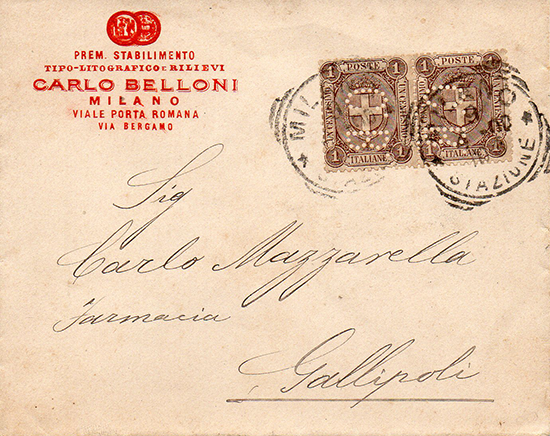 PREM. STABILIMENTO
TIPO-LITOGRAFICO E RILIEVI
CARLO BELLONI
MILANO
VIALE PORTA ROMANA
VIA BERGAMO
1 POSTE 1
UN CENTESIMO
1 ITALIANE 1
1 POSTE 1
1 ITALIANE 1
MIL
STAZIONE
Sig
Carlo Mazzarella
Farmacia
Gallipoli